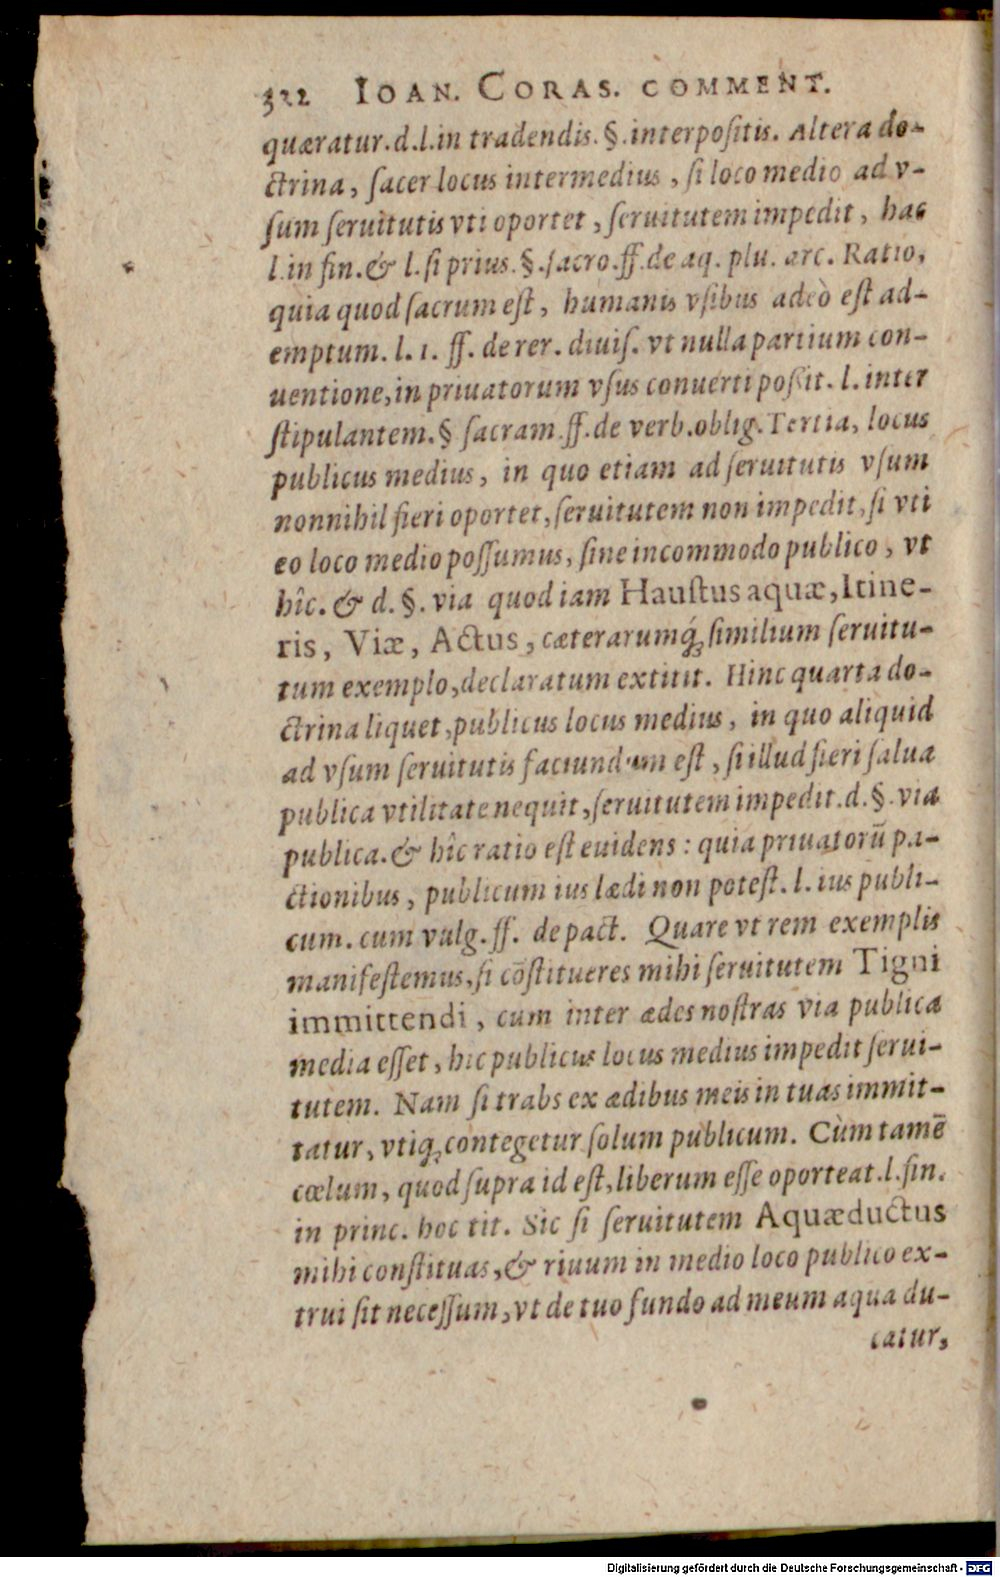 322 IOAN. CORAS. COMMENT.
quæratur.d.l.in tradendis.§.interpositis. Altera do-
ctrina, sacer locus intermedius, si loco medio ad v-
sum seruitutis vti oportet, seruitutem impedit, hac
l.in fin.& l.si prius.§.sacro.ff.de aq. plu. arc. Ratio,
quia quod sacrum est, humanis vsibus adeò est ad-
emptum. l. 1. ff. de rer. diuis. vt nulla partium con-
uentione, in priuatorum vsus conuerti possit. l. inter
stipulantem.§ sacram.ff.de verb.oblig. Tertia, locus
publicus medius, in quo etiam ad seruitutis vsum
nonnihil fieri oportet, seruitutem non impedit, si vti
eo loco medio possumus, sine incommodo publico, vt
hîc. & d. §. via quod iam Haustus aquæ, Itine-
ris, Viæ, Actus, cæterarumq́; similium seruitu-
tum exemplo, declaratum extitit. Hinc quarta do-
ctrina liquet, publicus locus medius, in quo aliquid
ad vsum seruitutis faciundum est, si illud fieri salua
publica vtilitate nequit, seruitutem impedit.d.§.via
publica.& hîc ratio est euidens: quia priuatorū pa-
ctionibus, publicum ius lædi non potest. l. ius publi-
cum. cum vulg. ff. de pact. Quare vt rem exemplis
manifestemus, si cōstitueres mihi seruitutem Tigni
immittendi, cum inter ædes nostras via publica
media esset, hic publicus locus medius impedit serui-
tutem. Nam si trabs ex ædibus meis in tuas immit-
tatur, vtiq; contegetur solum publicum. Cùm tamē
cœlum, quod supra id est, liberum esse oporteat.l.fin.
in princ. hoc tit. Sic si seruitutem Aquæductus
mihi constituas, & riuum in medio loco publico ex-
trui sit necessum, vt de tuo fundo ad meum aqua du-
catur,
Digitalisierung gefördert durch die Deutsche Forschungsgemeinschaft - DFG